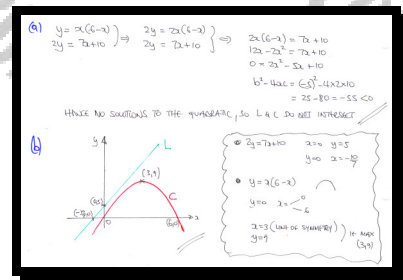 (a) y = x(6-x) } ⇒ 2y = 2x(6-x) } ⇒ 2x(6-x) = 7x+10
2y = 7x+10 2y = 7x+10
12x - 2x² = 7x+10
0 = 2x² - 5x + 10
b² - 4ac = (-5)² - 4×2×10
= 25 - 80 = -55 < 0
HENCE NO SOLUTIONS TO THE QUADRATIC, SO L & C DO NOT INTERSECT
(b)
y
L
(3,9)
C
(0,5)
(-10/7,0)
O
(6,0)
x
2y = 7x+10 x=0 y=5
y=0 x=-10/7
y = x(6-x)
y=0 x= 0
6
x=3 (LINE OF SYMMETRY)
y=9
MAX
(3,9)